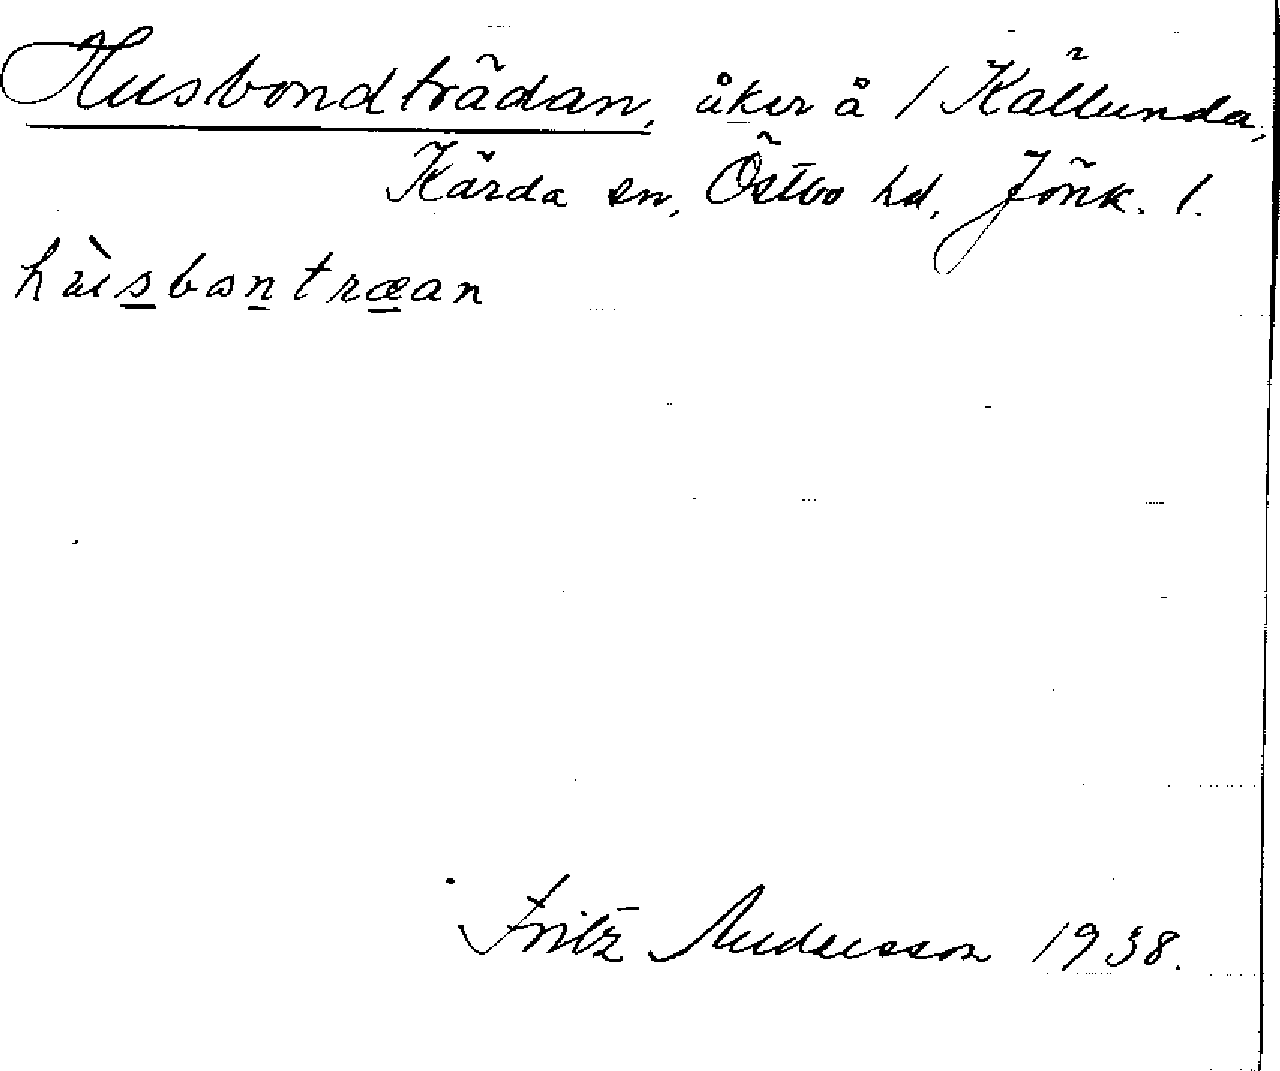 Husbondträdan, åker å / Källunda,
Kärda sn, Östbo hd, Jönk. l.
hùsbontræan
Fritz Andersson 1938.